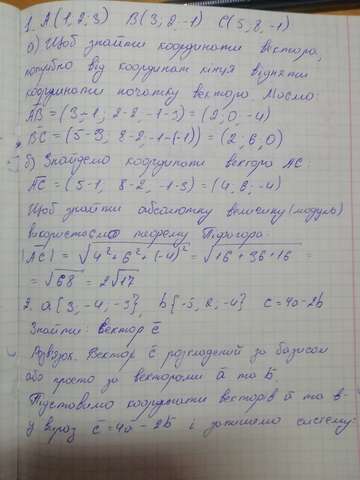 1. A(1,2,3) B(3,2,-1) C(5,8,-1)
а) Щоб знайти координати вектора,
потрібно від координат кінця відняти
координати початку вектора. Маємо:
AB = (3-1; 2-2, -1-3) = (2, 0, -4)
BC = (5-3, 8-2, -1-(-1)) = (2; 6, 0)
б) Знайдемо координати вектора AC:
AC = (5-1, 8-2, -1-3) = (4, 6, -4)
Щоб знайти абсолютну величину (модуль)
використаємо теорему Піфагора:
|AC| = √4²+6²+(-4)² = √16+36+16 =
= √68 = 2√17
2. a{3, -4, -5}, b{-5, 2, -4} c=4a-2b
Знайти: вектор c
Розв'язок. Вектор c розкладений за базисом
або просто за векторами a та b.
Підставимо координати векторів a та в
у вираз c = 4a - 2b і запишемо систему: